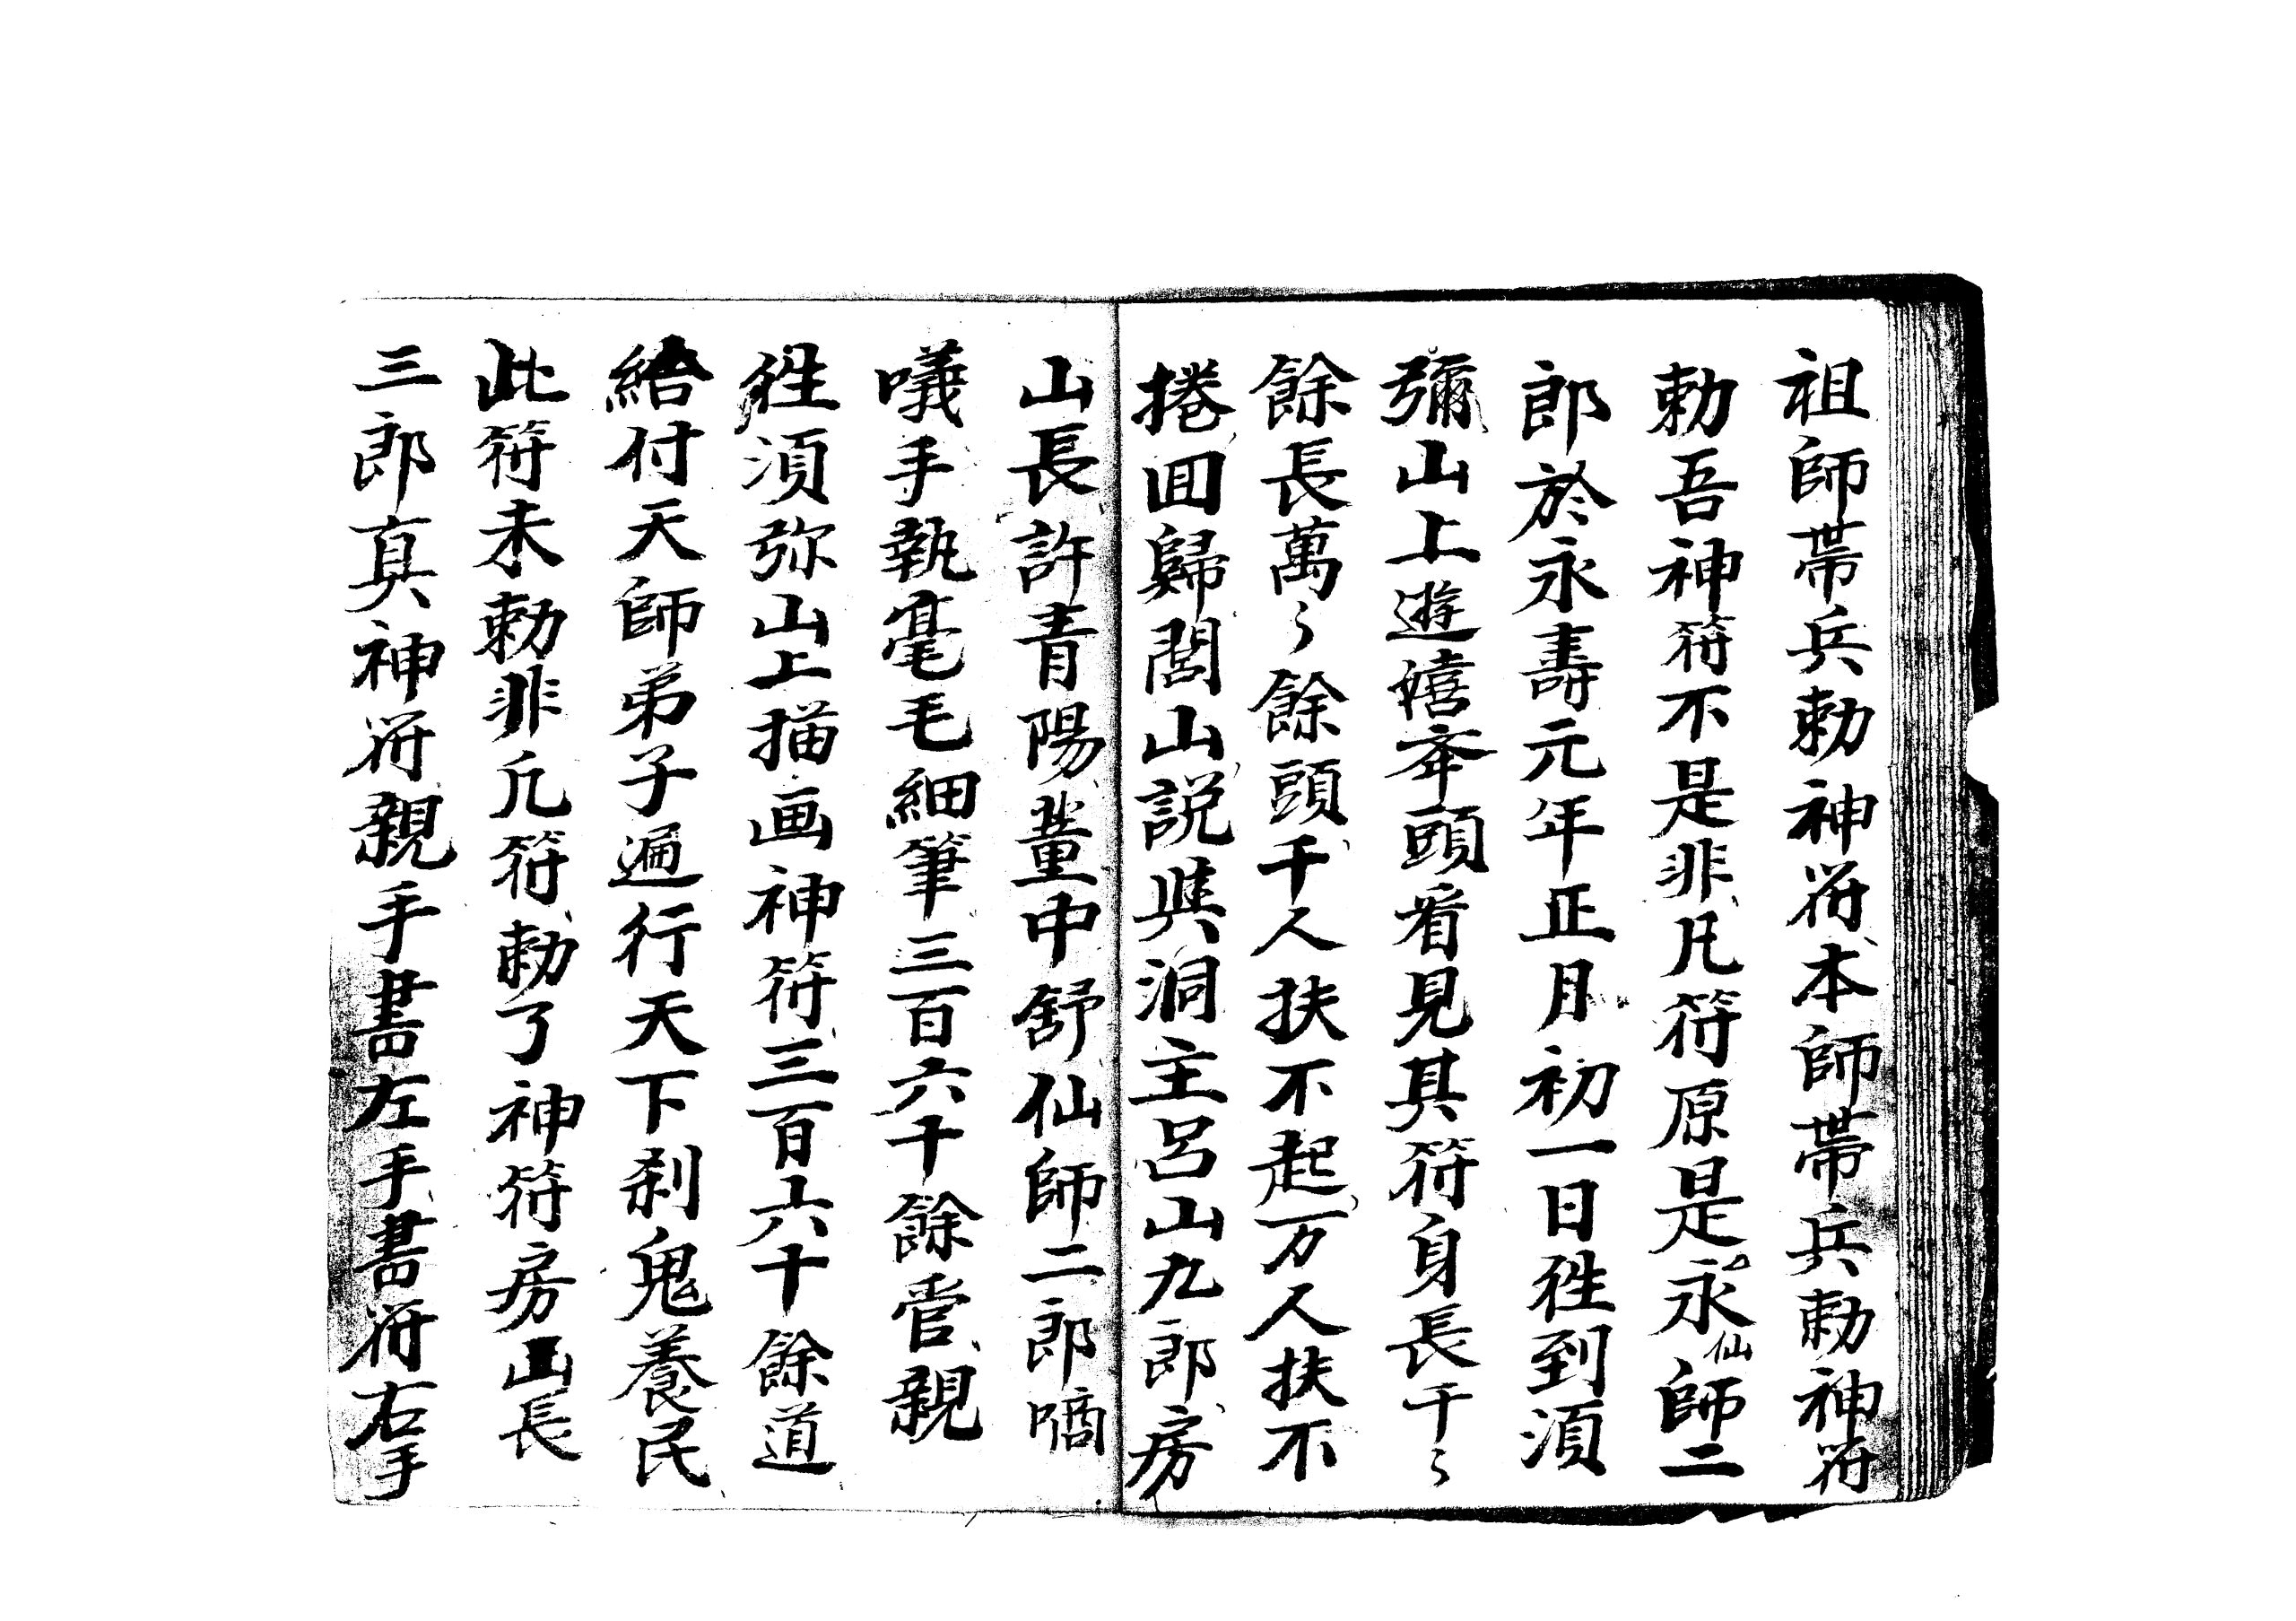 祖師帶兵勅神符本師帶兵勅神符
勅吾神符不是非凡符原是永仙師二
郎於永壽元年正月初一日徃到湏
彌山上遊嬉夲頭看見其符身長千〻
餘長萬〻餘頭千人扶不起万人扶不
捲回歸閭山説與洞主呂山九郎房
山長許青陽董中舒仙師二郎㗿
嚷手執毫毛細筆三百六十餘管親
徃湏弥山上描画神符三百六十餘道
給付天師弟子遍行天下刹鬼養民
此符未勅非凢符勅了神符房山長
三郎真神符親手書左手書符右手